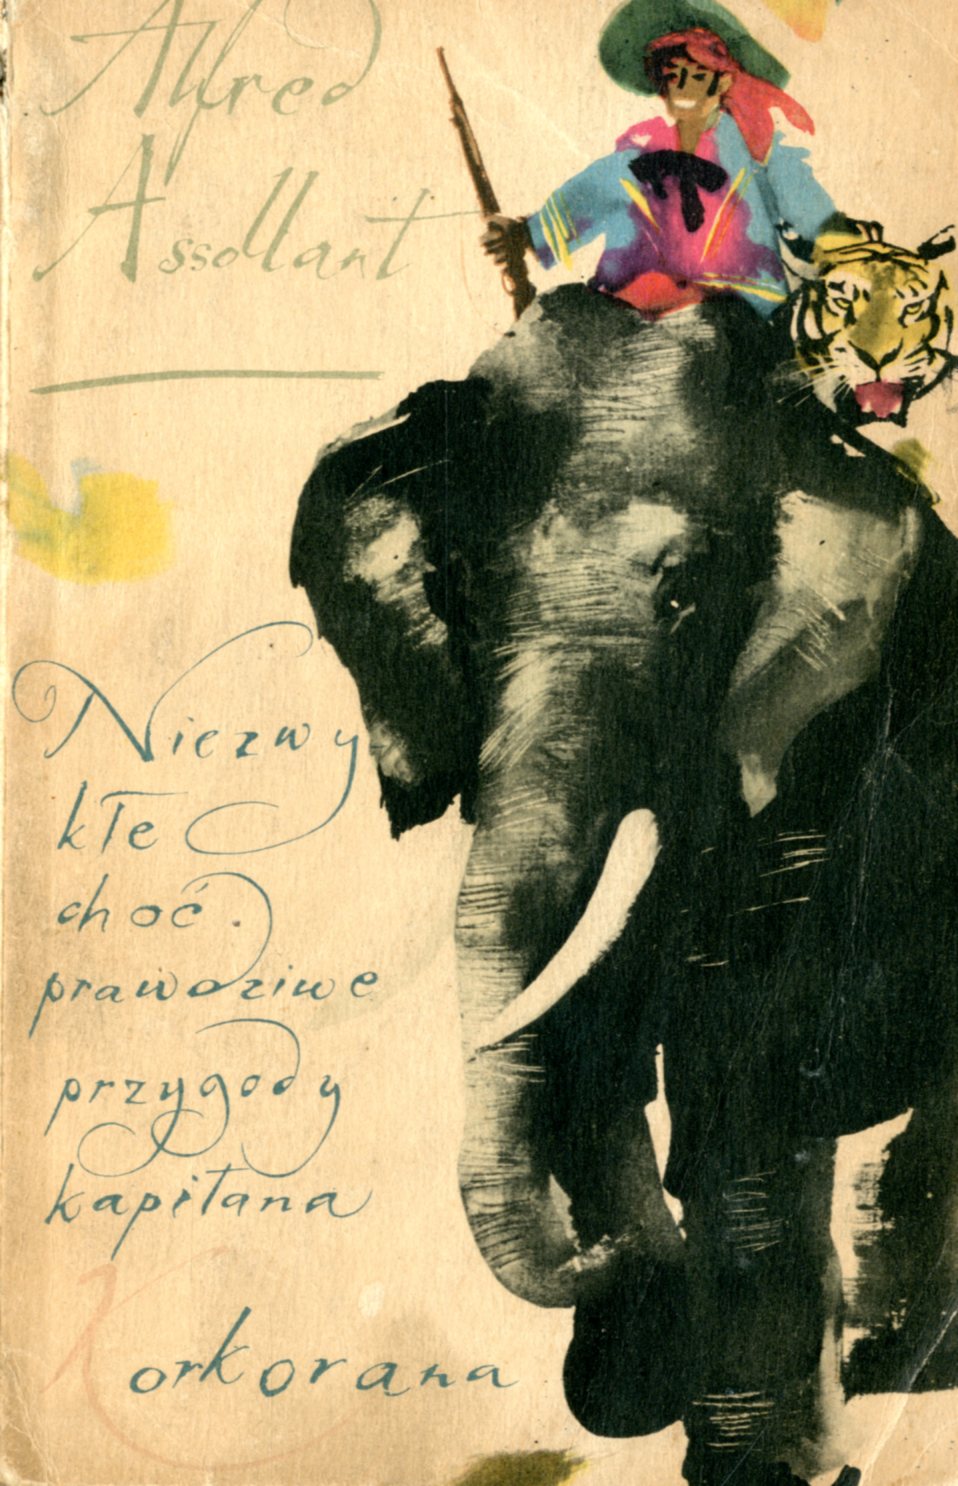 Alfred
Assollant
Niezwy
kłe
choć
prawdziwe
przygody
kapitana
Korkorana